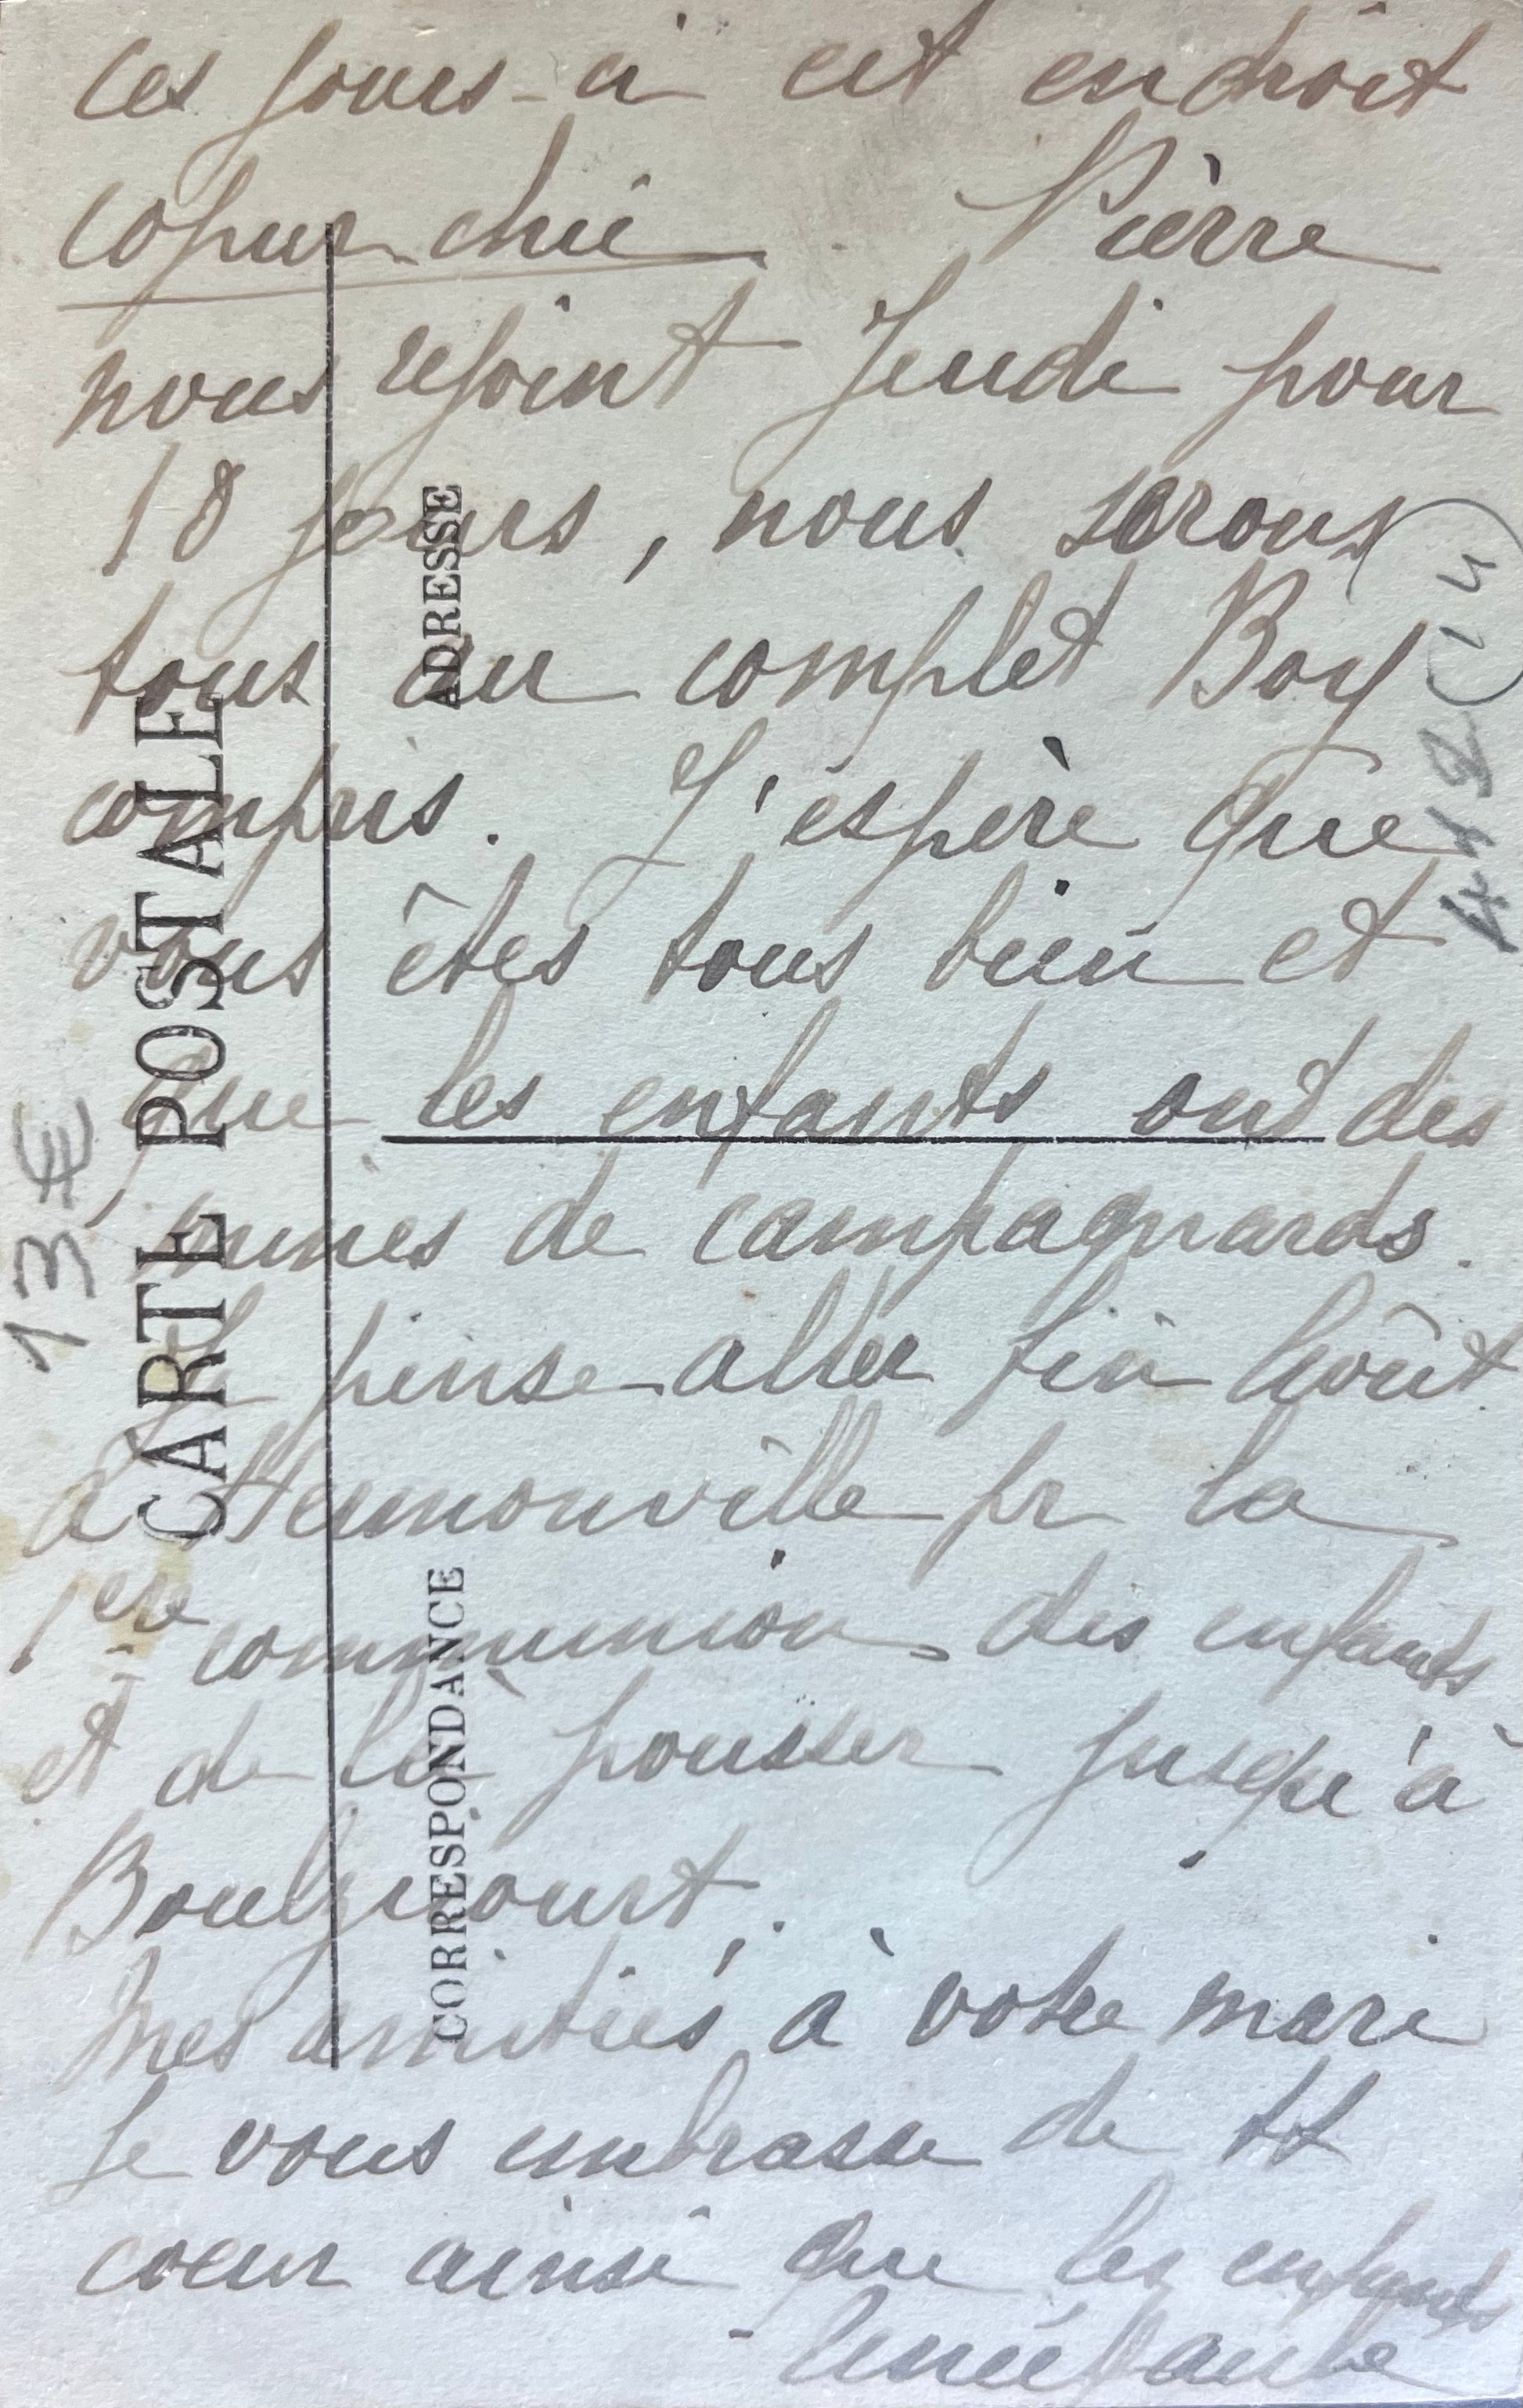 ces jours-ci cet endroit
copurchic Pierre
nous rejoint Jeudi pour
18 jours, nous serons
tous au complet Boy
compris. J'espère que
vous êtes tous bien et
que les enfants ont des
mines de campagnards.
Je pense aller fin Août
à Hermonville pr la
1ère communion des enfants
et de là pousser jusqu'à
Boulzicourt.
Mes amitiés à votre mari
Je vous embrasse de tt
coeur ainsi que les enfants
CARTE POSTALE
ADRESSE
CORRESPONDANCE
13€